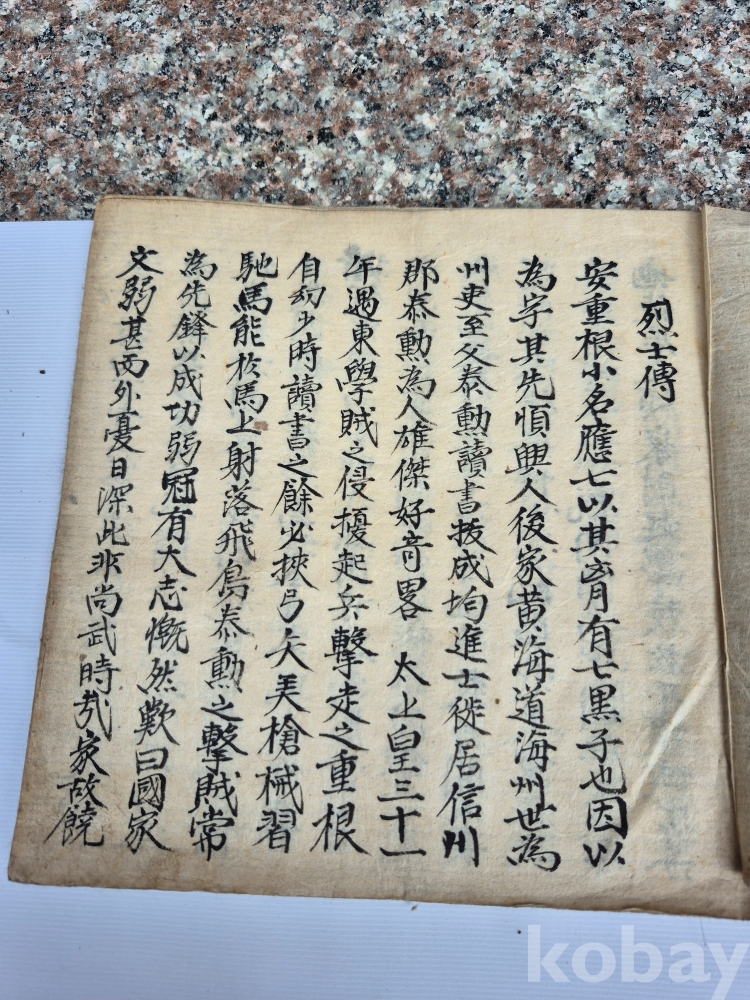 烈士傳
安重根小名應七以其胷有七黒子也因以
為字其先順興人後家黄海道海州世為
州吏至父泰勳讀書拔成均進士徙居信川
郡泰勳為人雄傑好竒畧 太上皇三十一
年遇東學賊之侵擾起兵擊走之重根
自幼少時讀書之餘必挾弓矢美槍械習
馳馬能於馬上射落飛鳥泰勳之擊賊常
為先鋒以成功弱冠有大志慨然歎曰國家
文弱甚而外憂日深此非尚武時㢤家故饒
kobay